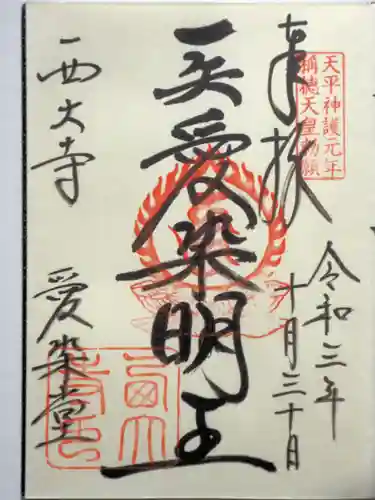 天平神護元年
稱徳天皇勅願
奉拝
令和三年
十月三十日
愛染明王
西大寺
愛染堂